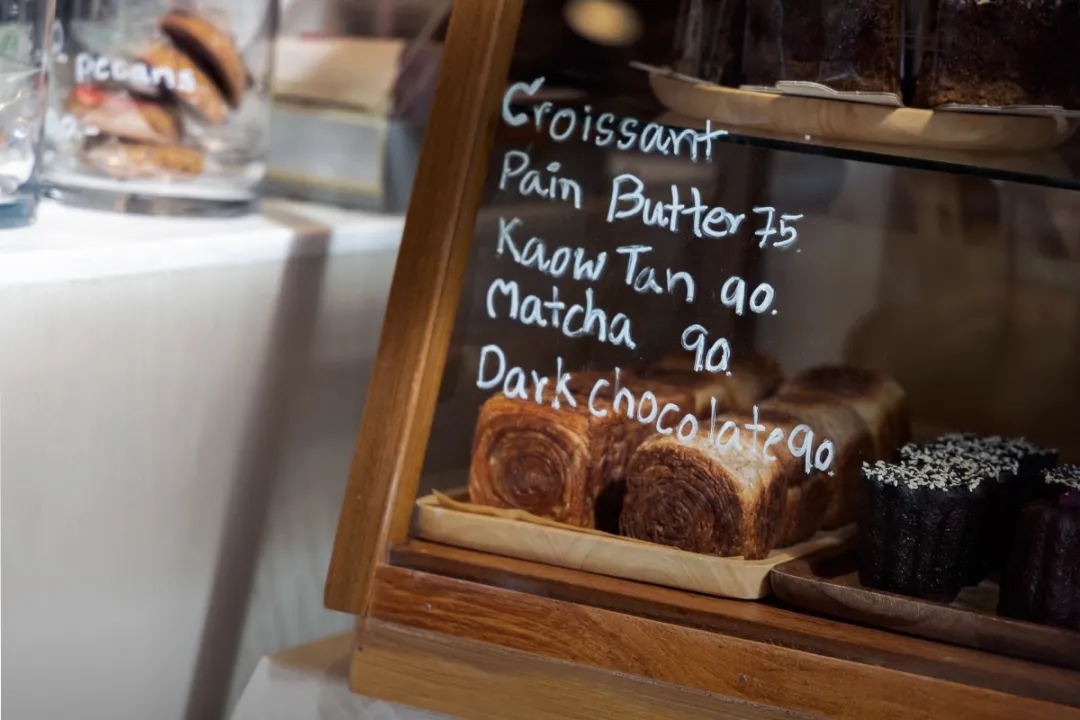 pecans
Croissant
Pain Butter 75.
Kaow Tan 90.
Matcha 90.
Dark chocolate 90.